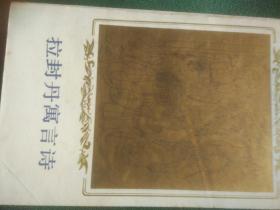 拉封丹寓言诗